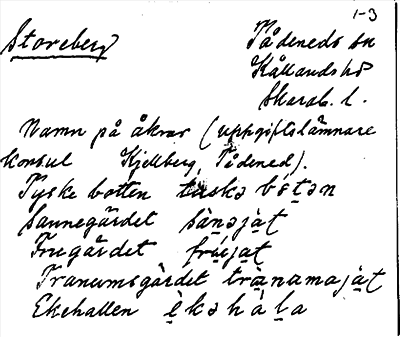 1-3
Storeberg
Tådeneds sn
Kållands hd
Skarab. l.
Namn på åkrar (uppgiftslämnare
konsul Kjellberg, Tådened).
Tyske botten tüskə bótən
Sannegärdet sànəjàt
Frugärdet frúejat
Tranumsgärdet trànamajàt
Ekehallen èkəhàla